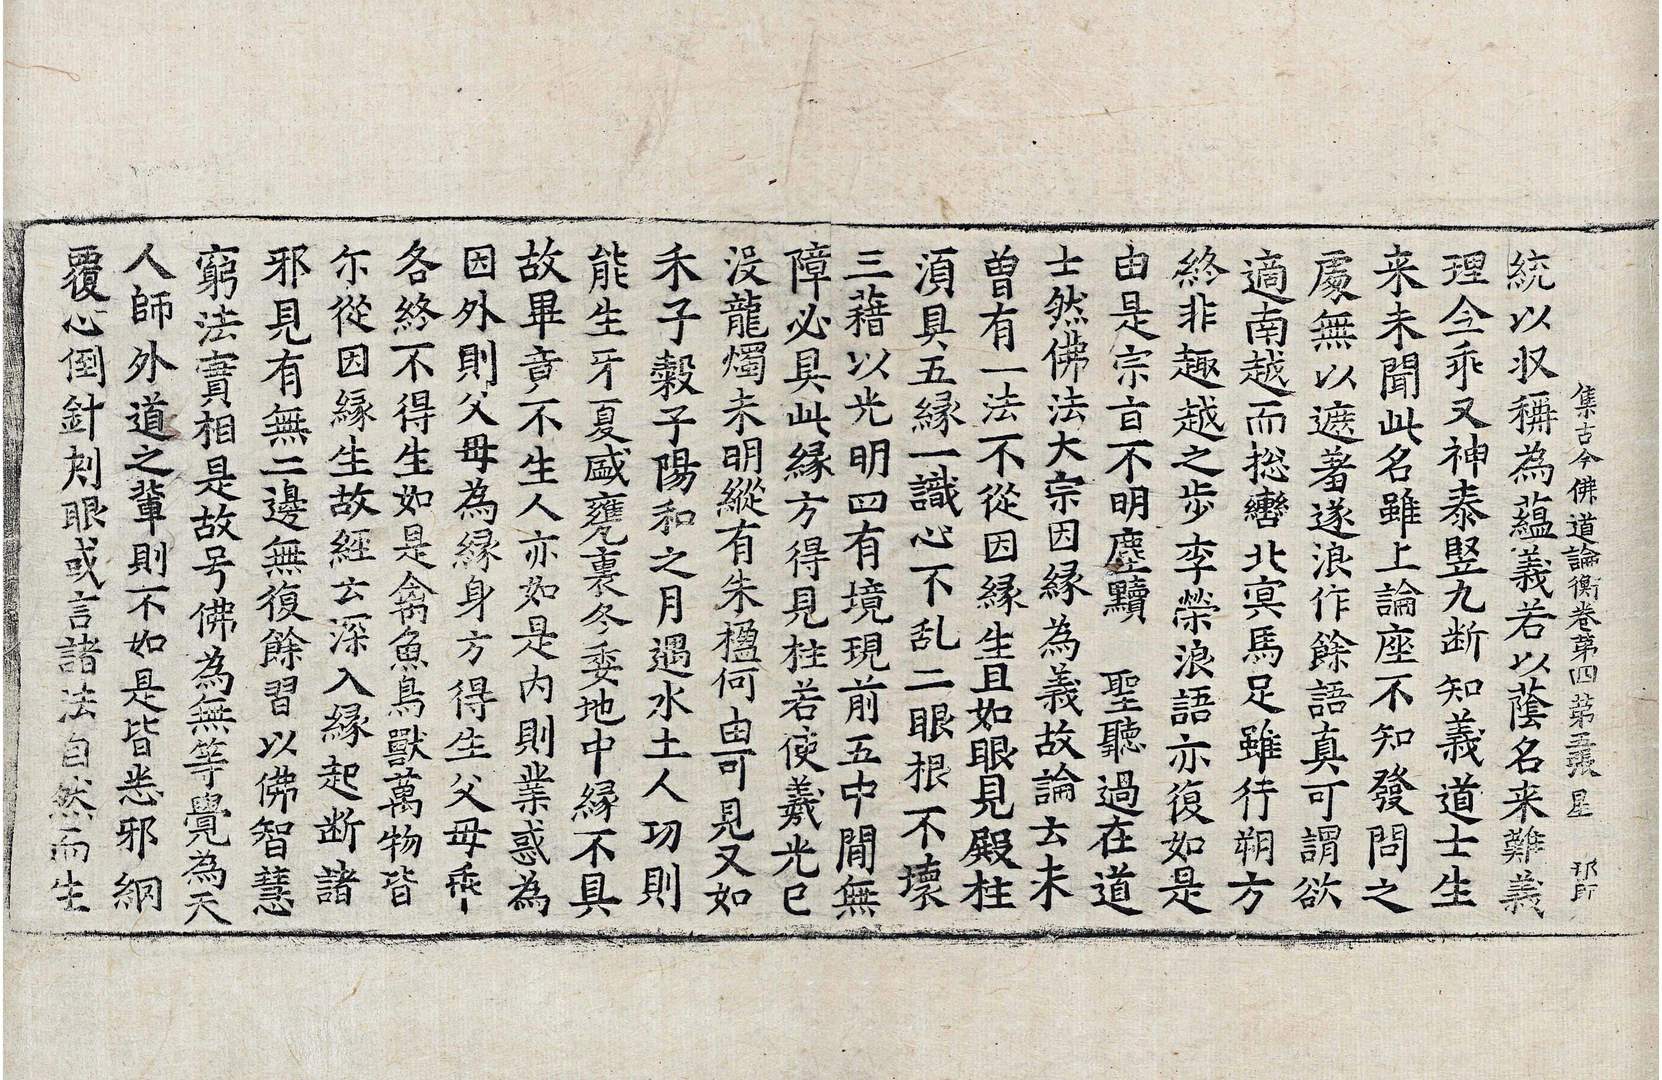 集古今佛道論衡卷第四 第五張 星
統以収稱為蘊義若以蔭名来難義
理今乖又神泰竪九断知義道士生
来未聞此名雖上論座不知發問之
處無以遮著遂浪作餘語真可謂欲
適南越而捴轡北㝠馬足雖行朔方
終非趣越之步李榮浪語亦復如是
由是宗盲不明塵黷 聖聽過在道
士然佛法大宗因縁為義故論去未
曽有一法不從因縁生且如眼見殿柱
湏具五縁一識心不乱二眼根不壞
三藉以光明四有境現前五中閒無
障必具此縁方得見柱若使羲光已
没龍燭未明縱有朱楹何由可見又如
禾子穀子陽和之月遇水土人功則
能生牙夏盛甕裏冬委地中縁不具
故畢竟不生人亦如是内則業惑為
因外則父母為縁身方得生父母乖
各終不得生如是禽魚鳥獸萬物皆
尓從因縁生故經云深入縁起断諸
邪見有無二邊無復餘習以佛智慧
窮法實相是故号佛為無等覺為天
人師外道之輩則不如是皆悉邪網
覆心倒針刾眼或言諸法自然而生